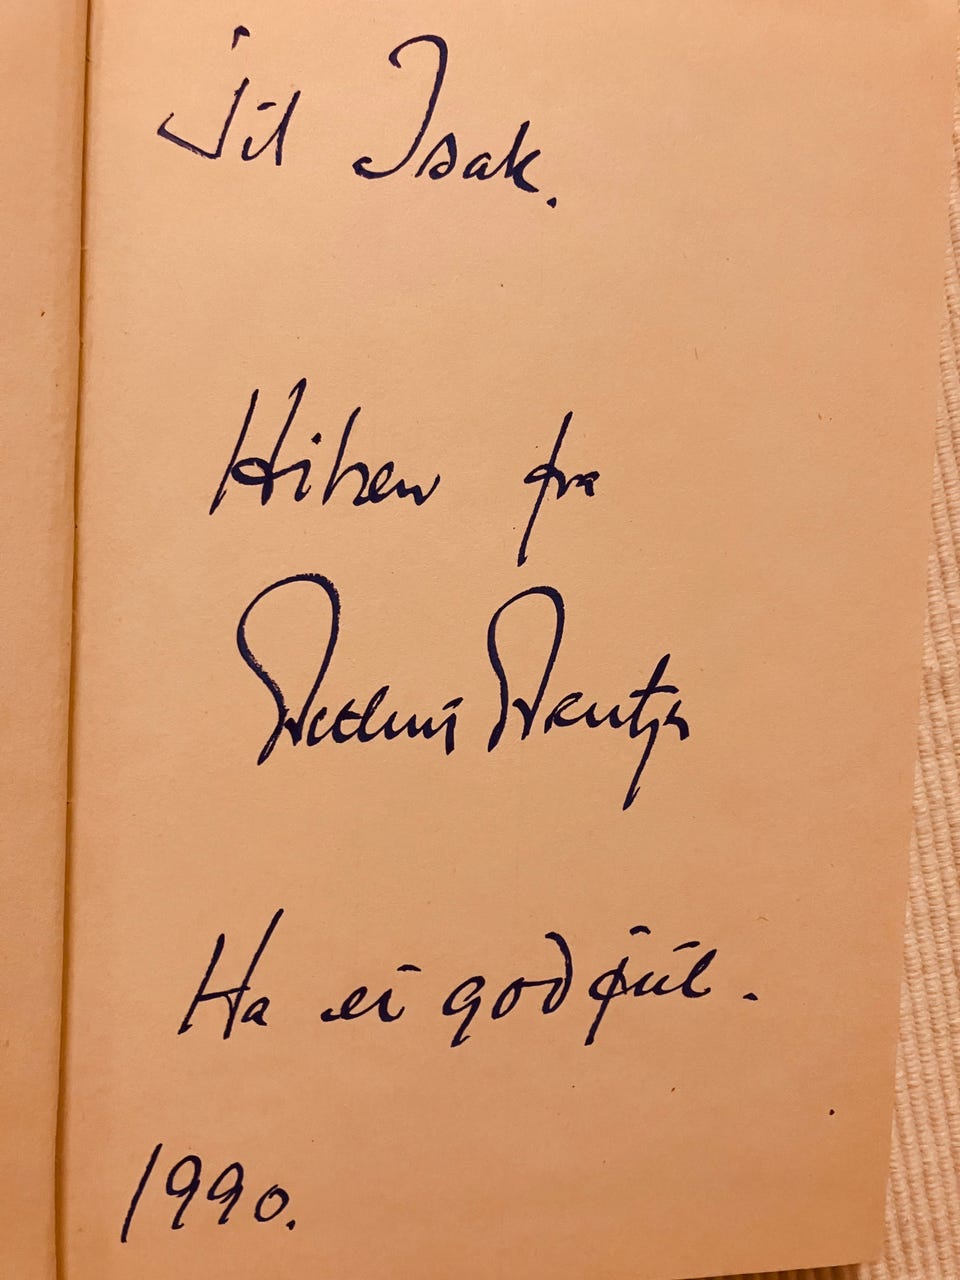 Til Isak.
Hilsen fra
Ha ei god jul.
1990.